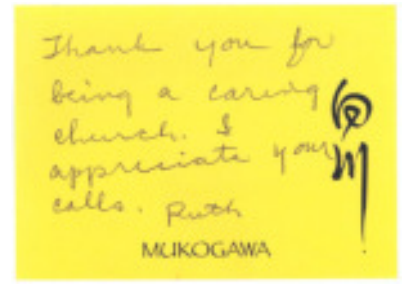 Thank you for
being a caring
church. I
appreciate your
calls. Ruth
MUKOGAWA